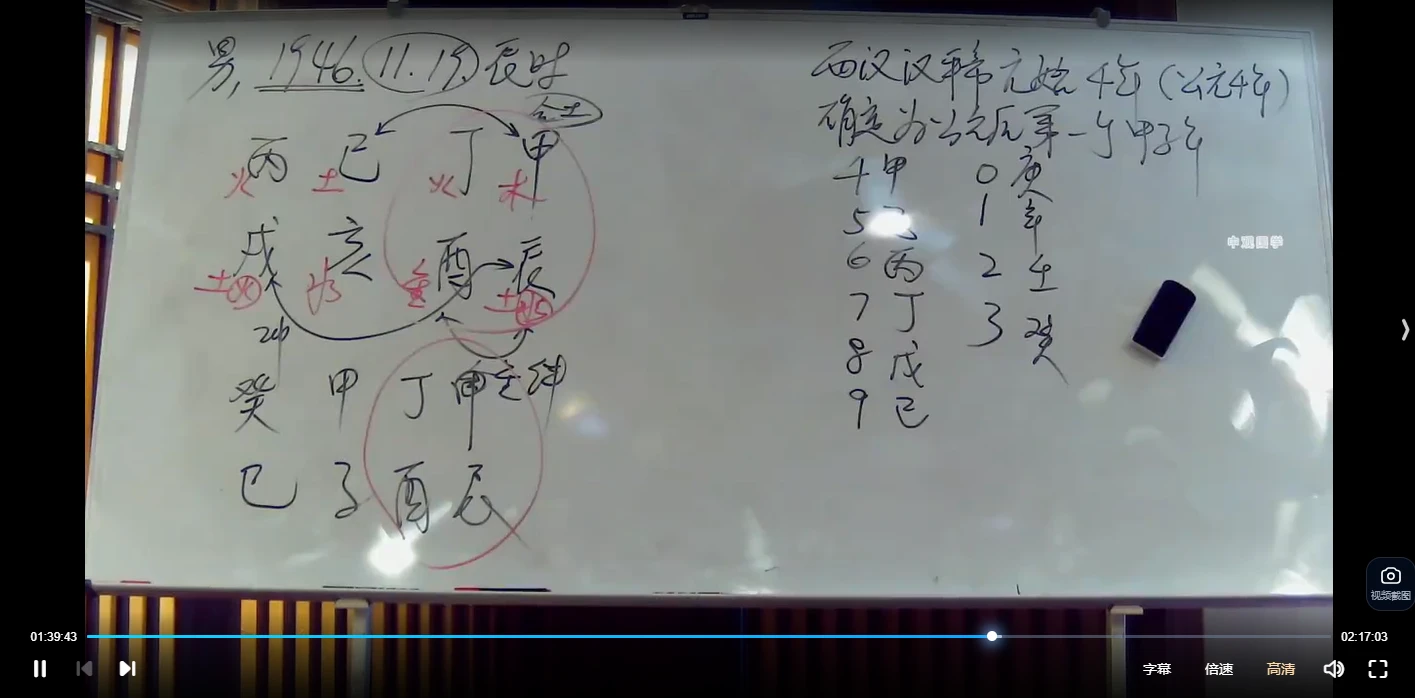 男, 1946. 11. 19. 辰时
合土
丙 己 丁 甲
火 土 火 木
戌 亥 酉 辰
土火 水 金 土水
冲
癸 甲 丁 甲
巳 子 酉 辰
西汉汉平帝元始4年(公元4年)
确定为公元后第一个甲子年
4 甲 0 庚
5 乙 1 辛
6 丙 2 壬
7 丁 3 癸
8 戊
9 己
中观国学
视频截图
01:39:43 02:17:03
字幕 倍速 高清